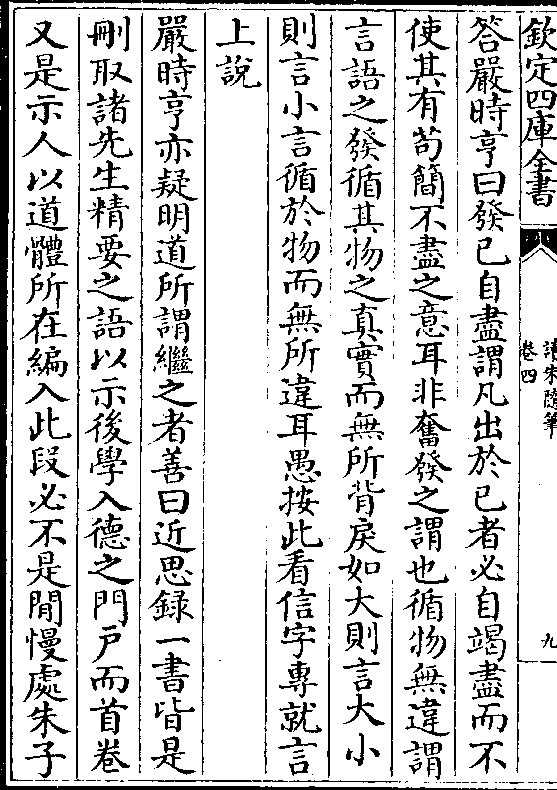 欽定四庫全書
讀朱隨筆
卷四
九
答嚴時亨曰發已自盡謂凡出於已者必自竭盡而不
使其有苟簡不盡之意耳非奮發之謂也循物無違謂
言語之發循其物之真實而無所背戾如大則言大小
則言小言循於物而無所違耳愚按此看信字專就言
上說
嚴時亨亦疑明道所謂繼之者善曰近思錄一書皆是
刪取諸先生精要之語以示後學入德之門戶而首卷
又是示人以道體所在編入此段必不是閒慢處朱子